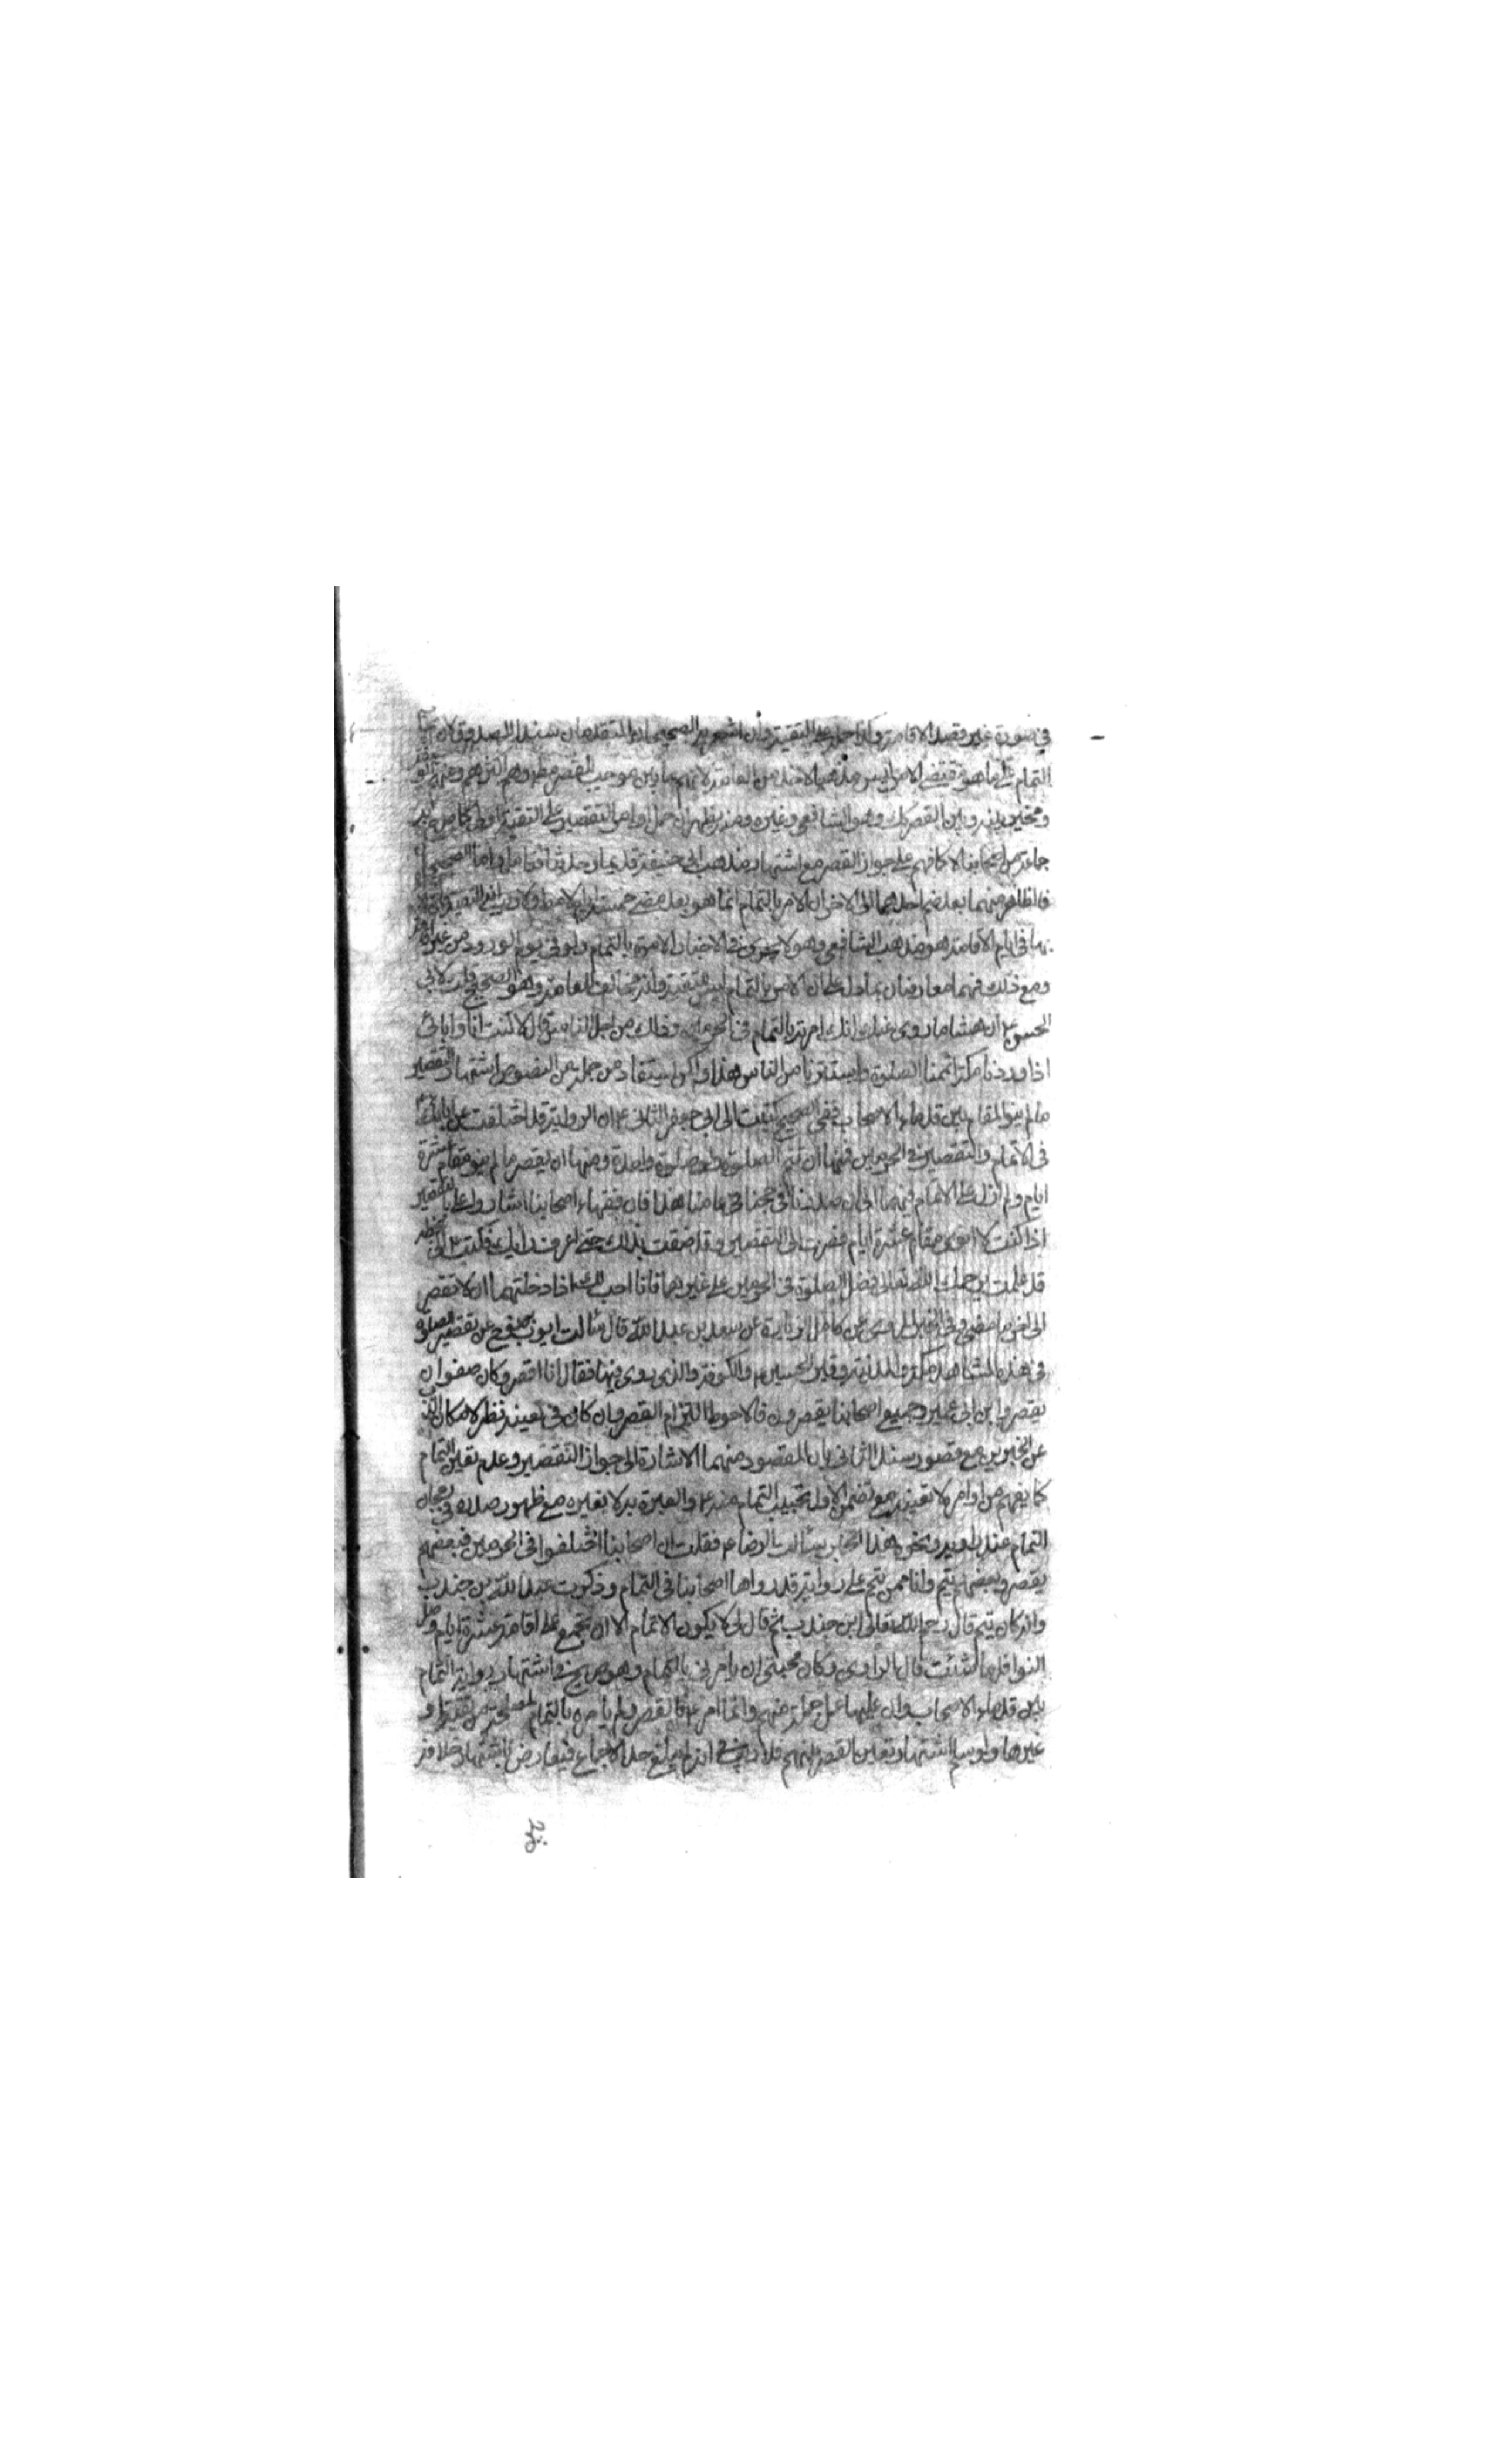 في صورة غير قصد الاقامة وكذا حمله على التقية وان اشعر به الصحيحان المتقدمان سندا لصدوقلان تحتم
التمام على ما هو مقتضى الامر ليس مذهبا لاحد من العامة لانهم ما بين موجب للقصر مطلقا وهم اكثرهم ومنهم ابو حنيفة
ومخير بينه وبين القصر كك وهو الشافعي وغيره ومنه يظهر ان حمل اوامر التقصير على التقية اولى كما صرح به
جماعة من اصحابنا لاتفاقهم على جواز القصر مع اشتهار مذهب ابي حنيفة قديما وحديثا فتامل واما الصحيحان
فالظاهر منهما بعد ضم احدهما الى الاخر ان الامر بالتمام انما هو بعد مضي خمسة ايام لا مطلقا ولا ريب ان التقية
بها في ايام الاقامة هو مذهب الشافعي وهو لا يجري في الاخبار الامرة بالتمام ولو في يوم الورود من غير اقامة
ومع ذلك فهما معارضان بما دل على ان الامر بالتمام ليس للتقية وانه مخالف للعامة وهو الصحيح قلت لابي
الحسن ع ان هشاما روى عنك انك امرته بالتمام في الحرمين وذلك من اجل الناس قال لا كنت انا وابائي
اذا وردنا مكة اتممنا الصلوة واستترنا من الناس هذا ولكن يستفاد من جملة من النصوص اشتهار التقصير
ما لم ينو المقام بين قدماء الاصحاب ففي الصحيح كتبت الى ابي جعفر الثاني ع ان الرواية قد اختلفت عن ابائك
في الاتمام والتقصير في الحرمين فمنها ان تتم الصلوة ولو صلوة واحدة ومنها ان يقصر ما لم ينو مقام عشرة
ايام ولم ازل على الاتمام فيهما الى ان صدرنا في حجنا في عامنا هذا فان فقهاء اصحابنا اشاروا على بالتقصير
اذا كنت لا انوي مقام عشرة ايام فصرت الى التقصير وقد ضقت بذلك حتى اعرف رايك فكتب ع الى بخطه
قد علمت يرحمك الله تعالى فضل الصلوة في الحرمين على غيرهما فانا احب لك اذا دخلتهما ان لا تقصر
الى اخر ما مضى وفي الخبر المروي عن كامل الزيارة عن سعد بن عبد الله قال سالت ايوب بن نوح عن تقصير الصلوة
في هذه المشاهد مكة والمدينة وقبر الحسين ع والكوفة والذي روى فيها فقال انا اقصر وكان صفوان
يقصر وابن ابي عمير وجميع اصحابنا يقصرون فالاحوط التزام القصر وان كان في تعينه نظر لامكان الذب
عن الخبرين مع قصور سند الثاني بان المقصود منهما الاشارة الى جواز التقصير وعدم تعين التمام
كما يفهم من اوامره لا تعينه مع تضمن الاول تحبيب التمام منه ع والعبرة به لا بغيره مع ظهور صدره في رجحان
التمام عنده او يرد نحو هذا الخبر سالت الرضا ع فقلت ان اصحابنا اختلفوا في الحرمين فبعضهم
يقصر وبعضهم يتم وانا ممن يتم على رواية قد رواها اصحابنا في التمام وذكرت عبد الله بن جندب
وانه كان يتم قال رحم الله تعالى ابن جندب ثم قال لي لا يكون الاتمام الا ان تجمع على اقامة عشرة ايام وصل
النوافل ما شئت قال الراوي وكان محبتي ان يامرني بالتمام وهو صريح في اشتهار رواية التمام
بين قدماء الاصحاب وان عليها عمل جملة منهم وانما امر ع بالقصر ولم يامره بالتمام لمصلحة من تقية او
غيرها ولو سلم اشتهار تعين القصر بينهم فلا ريب في انه لم يبلغ حد الاجماع فيعارض باشتهار خلافه